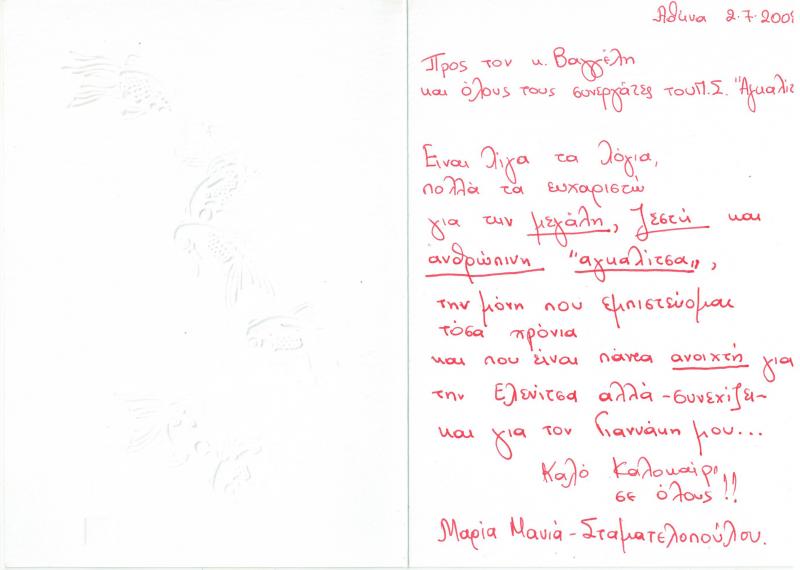 Αθήνα 2.7.200
Προς τον κ. Βαγγέλη
και όλους τους συνεργάτες του Π.Σ. "Αγκαλιτ
Είναι λίγα τα λόγια,
πολλά τα ευχαριστώ
για την μεγάλη, ζεστή και
ανθρώπινη "αγκαλίτσα",
την μόνη που εμπιστεύομαι
τόσα χρόνια
και που είναι πάντα ανοιχτή για
την Ελενίτσα αλλά -συνεχίζει-
και για τον Γιαννάκη μου...
Καλό Καλοκαίρι
σε όλους!!
Μαρία Μανιά - Σταματελοπούλου.